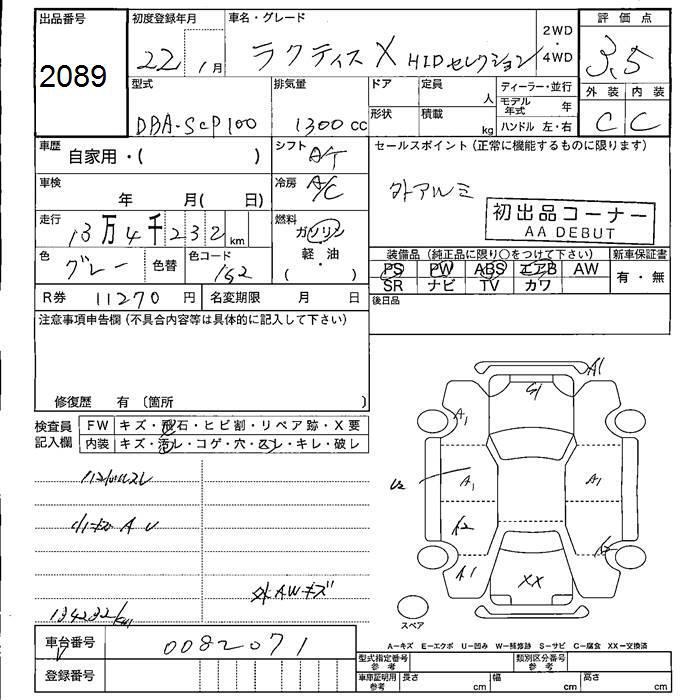 出品番号 初度登録年月 車名・グレード 2WD・4WD 評価点
2089 22年1月 ラクティス X HIDセレクション 3.5
型式 排気量 ドア 定員 人 ディーラー・並行 外装 内装
DBA-SCP100 1300cc 形状 積載 kg モデル年式 年 C C
ハンドル 左・右
車歴 自家用・( ) シフト A/T セールスポイント(正常に機能するものに限ります)
車検 年 月( 日) 冷房 A/C 外アルミ
初出品コーナー
AA DEBUT
走行 13万4千232km 燃料 ガソリン
軽・油
( )
色 グレー 色替 色コード 1G2
装備品(純正品に限り○をつけて下さい) 新車保証書
PS PW ABS エアB AW 有・無
SR ナビ TV カワ
R券 11270円 名変期限 月 日 後日品
注意事項申告欄(不具合内容等は具体的に記入して下さい)
修復歴 有 〔箇所 〕
検査員記入欄 FW キズ・飛石・ヒビ割・リペア跡・X要
内装 キズ・汚レ・コゲ・穴・スレ・キレ・破レ
外AWキズ
134232km
A1
G1
A1
U2 A1 A1
A2
A1 XX
スペア
A－キズ E－エクボ U－凹み W－補修跡 S－サビ C－腐食 XX－交換済
車台番号 0082071
登録番号
型式指定番号 参考 類別区分番号 参考
車庫証明用 参考 長さ cm 幅 cm 高さ cm